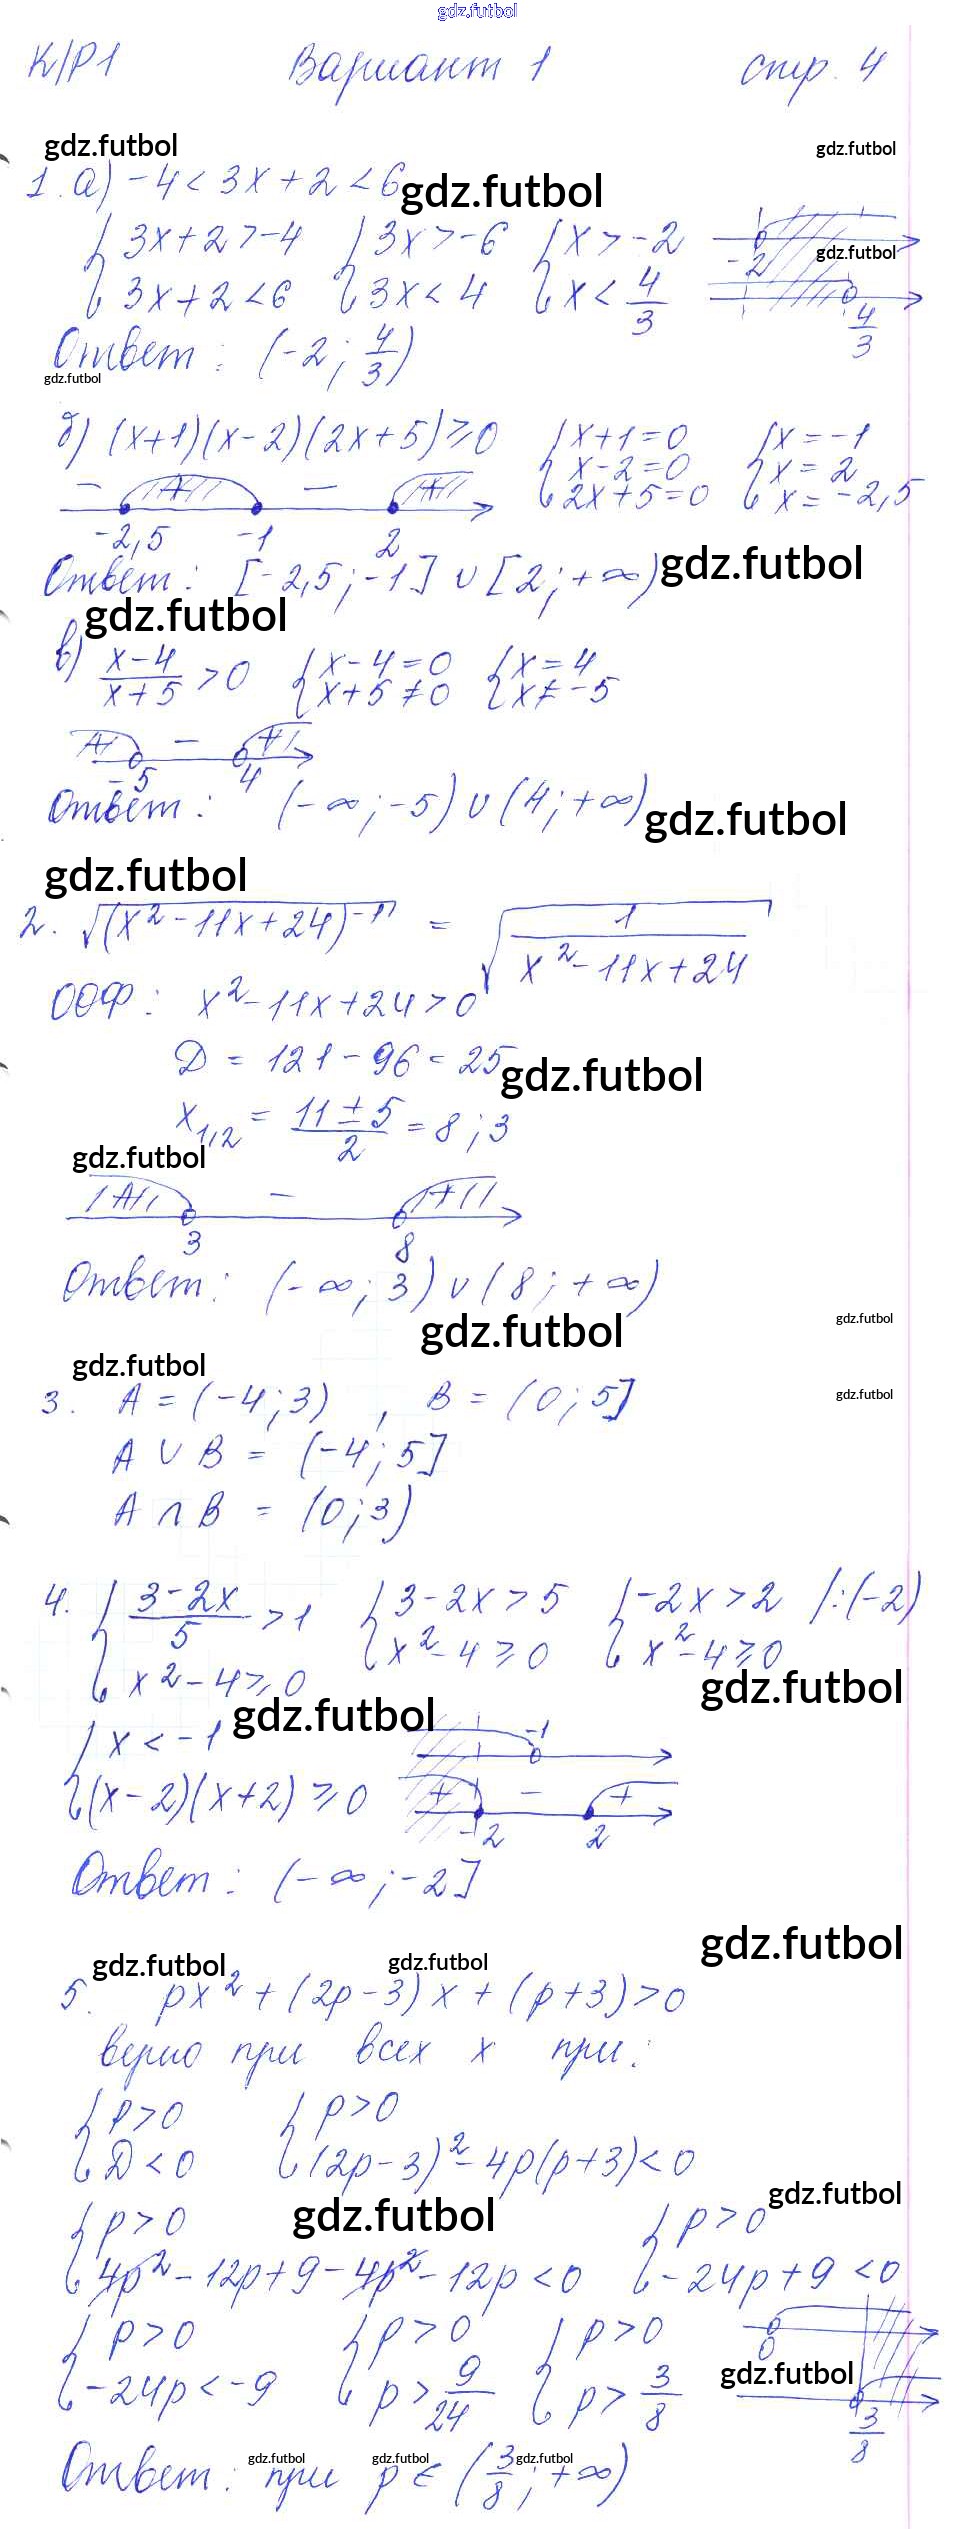 gdz.futbol
К/Р1 Вариант 1 стр. 4
gdz.futbol gdz.futbol
1. а) -4 < 3x + 2 < 6 gdz.futbol
{ 3x + 2 > -4 { 3x > -6 { x > -2
{ 3x + 2 < 6 { 3x < 4 { x < 4/3
-2 gdz.futbol
4/3
Ответ: (-2; 4/3)
gdz.futbol
б) (x+1)(x-2)(2x+5) ≥ 0 { x+1=0 { x = -1
{ x-2=0 { x = 2
{ 2x+5=0 { x = -2,5
- + - +
-2,5 -1 2
Ответ: [-2,5; -1] ∪ [2; +∞) gdz.futbol
gdz.futbol
в) (x-4)/(x+5) > 0 { x-4=0 { x = 4
{ x+5≠0 { x ≠ -5
+ - +
-5 4
Ответ: (-∞; -5) ∪ (4; +∞) gdz.futbol
gdz.futbol
2. √((x²-11x+24)⁻¹) = √(1/(x²-11x+24))
ООФ: x²-11x+24 > 0
D = 121 - 96 = 25 gdz.futbol
x₁,₂ = (11±5)/2 = 8; 3
gdz.futbol
+ - +
3 8
Ответ: (-∞; 3) ∪ (8; +∞)
gdz.futbol gdz.futbol
gdz.futbol
3. A = (-4; 3), B = (0; 5] gdz.futbol
A ∪ B = (-4; 5]
A ∩ B = (0; 3)
4. { (3-2x)/5 > 1 { 3-2x > 5 { -2x > 2 /:(-2)
{ x²-4 ≥ 0 { x²-4 ≥ 0 { x²-4 ≥ 0
gdz.futbol gdz.futbol
{ x < -1 -1
{ (x-2)(x+2) ≥ 0 + - +
-2 2
Ответ: (-∞; -2]
gdz.futbol
gdz.futbol gdz.futbol
5. px² + (2p-3)x + (p+3) > 0
верно при всех x при:
{ p > 0 { p > 0
{ D < 0 { (2p-3)² - 4p(p+3) < 0
gdz.futbol gdz.futbol
{ p > 0 { p > 0
{ 4p² - 12p + 9 - 4p² - 12p < 0 { -24p + 9 < 0
{ p > 0 { p > 0 { p > 0 0
{ -24p < -9 { p > 9/24 { p > 3/8 gdz.futbol
3/8
gdz.futbol gdz.futbol gdz.futbol
Ответ: при p ∈ (3/8; +∞)